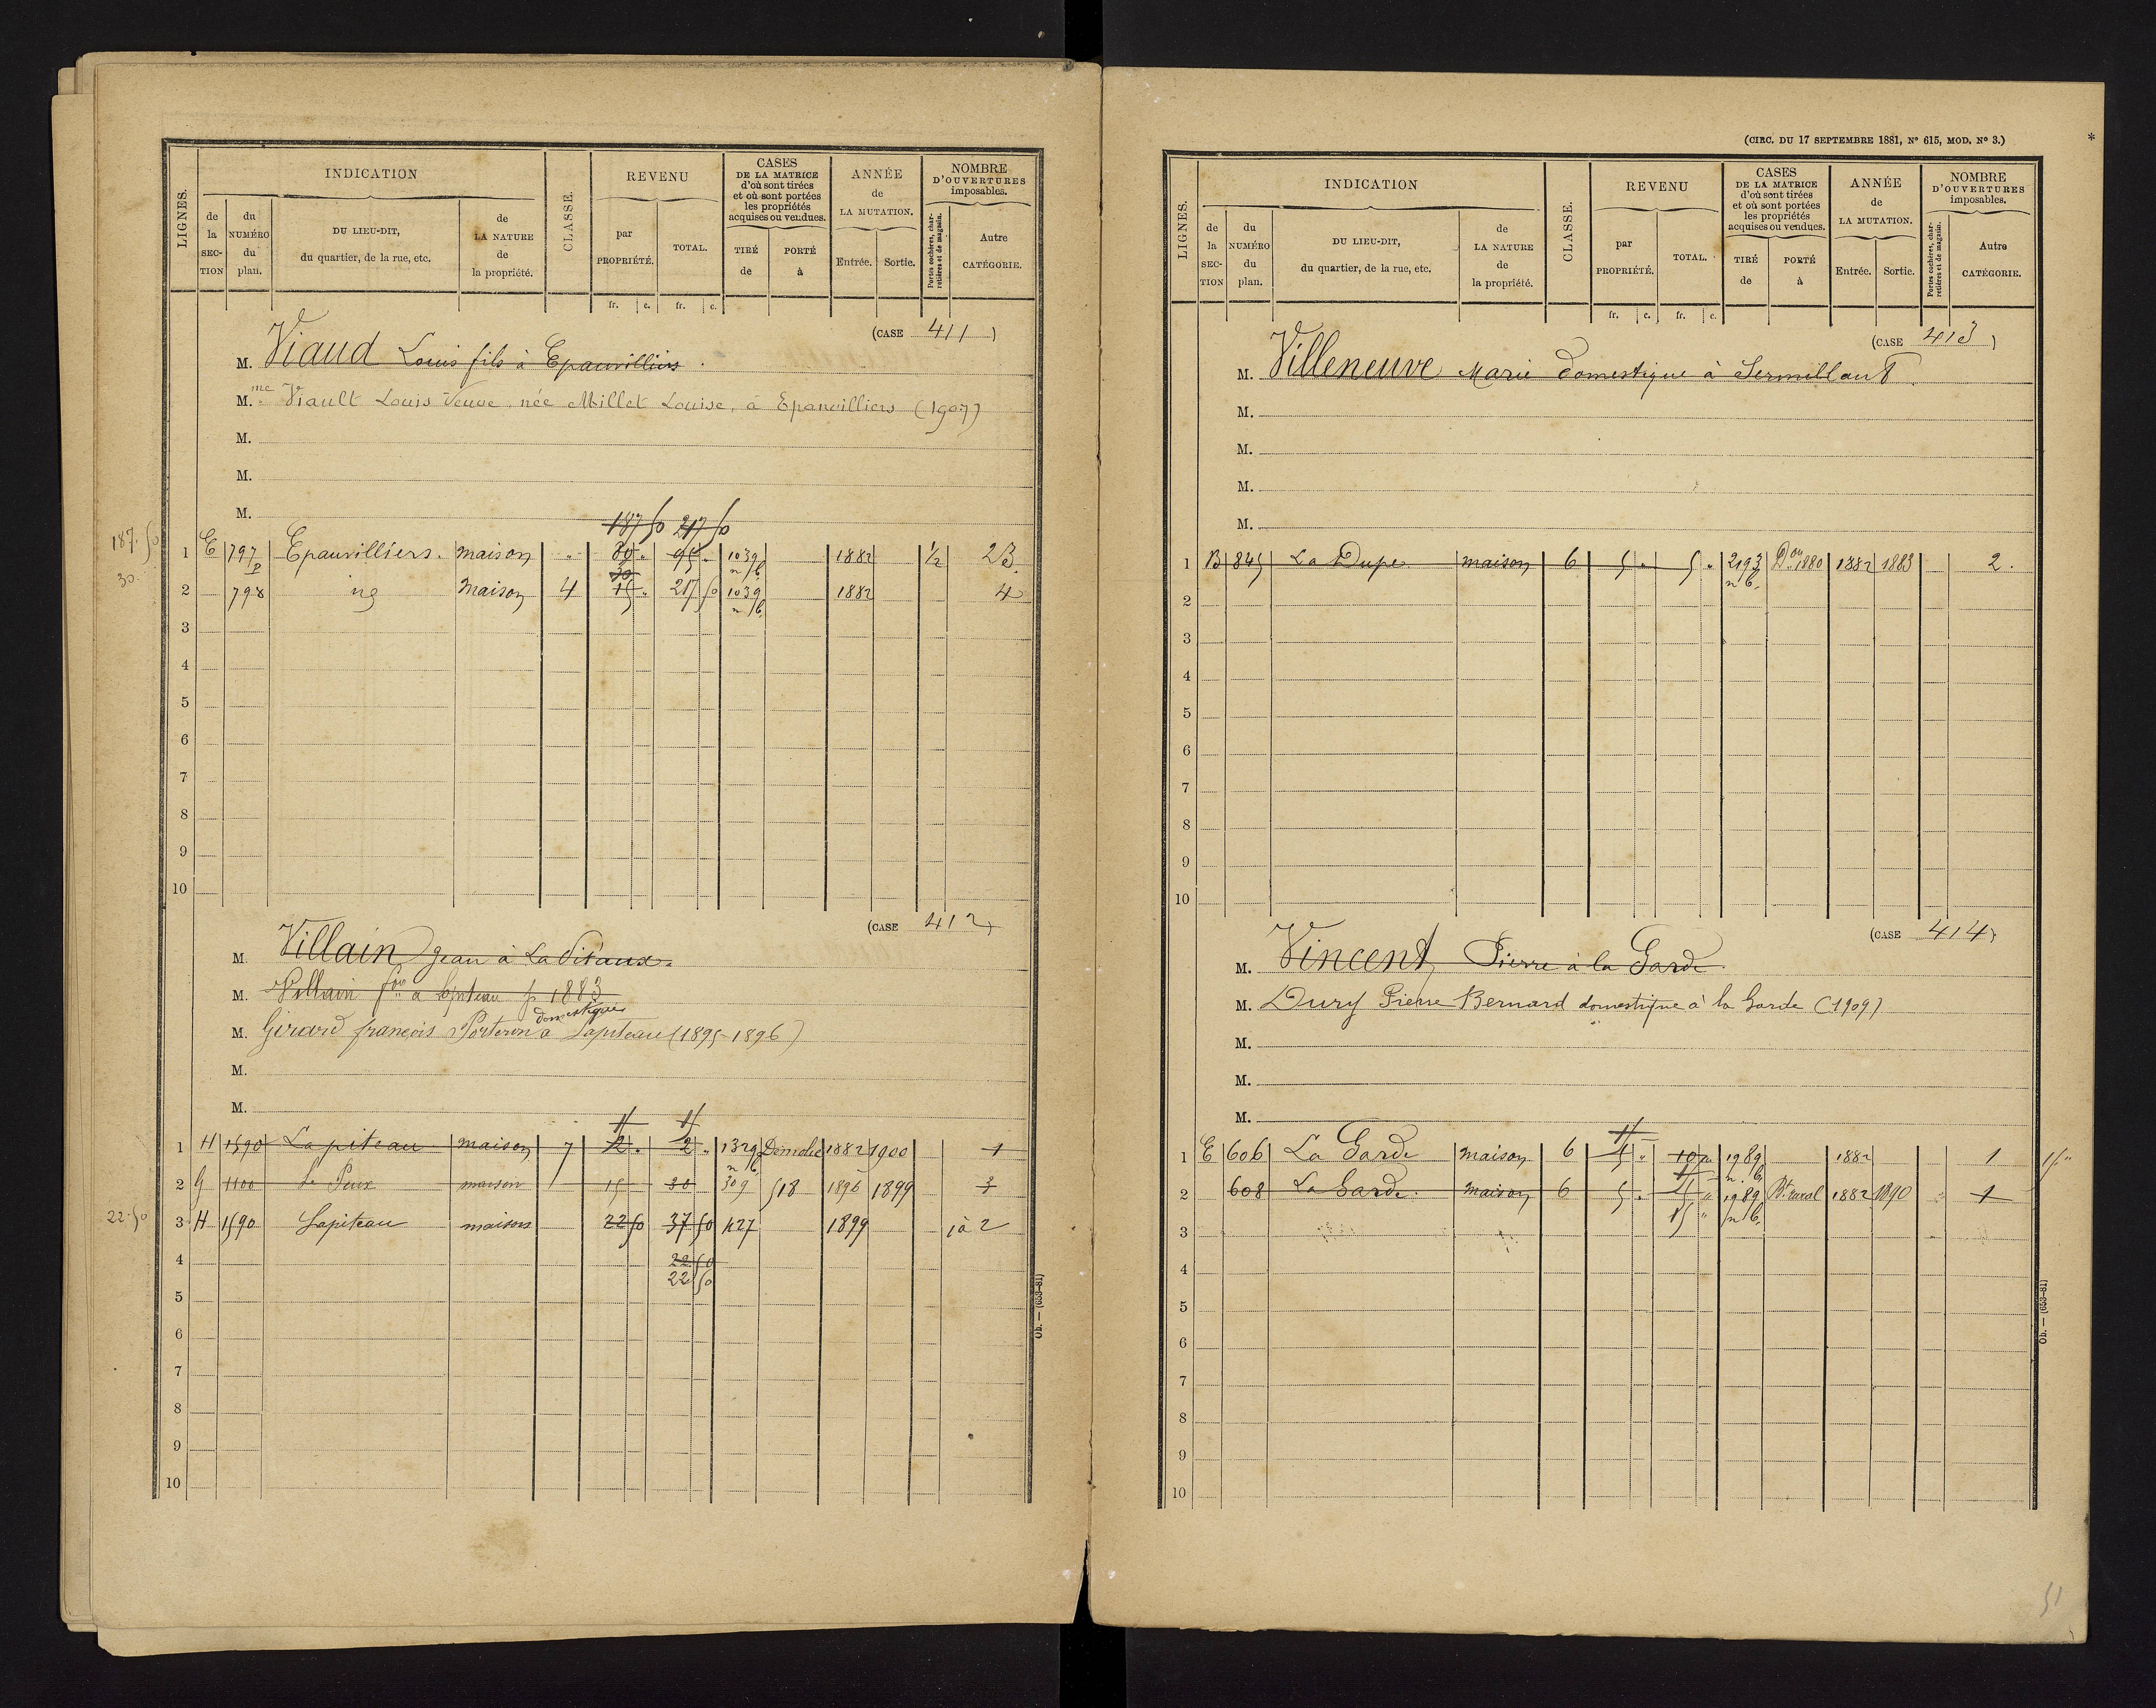 LIGNES.
INDICATION
de la SECTION
du NUMÉRO du plan.
DU LIEU-DIT, du quartier, de la rue, etc.
de LA NATURE de la propriété.
CLASSE.
REVENU
par PROPRIÉTÉ.
TOTAL.
CASES DE LA MATRICE d'où sont tirées et où sont portées les propriétés acquises ou vendues.
TIRÉ de
PORTÉ à
ANNÉE de LA MUTATION.
Entrée. Sortie.
NOMBRE D'OUVERTURES imposables.
Portes cochères, charretières et de magasin.
Autre CATÉGORIE.
fr. c. fr. c.
(CASE 411)
M. Viaud Louis fils à Epauvilliers.
M.me Viault Louis Veuve, née Millet Louise, à Epanvilliers (1907)
M.
M.
M.
187 50 217 50
187.50 1 E 797 p Epauvilliers. maison " 80 " 95 " 1039 n b. 1882 1/2 2B.
30. 30
2 798 id Maison 4 15 " 217 50 1039 n b. 1882 4
3
4
5
6
7
8
9
10
(CASE 412)
M. Villain Jean à
M. Villain fois à Lapiteau p 1883
domestique
M. Girard françois à Lapiteau (1895-1896)
M.
M.
1 H 1590 Lapiteau maison 7 2 " 2 " 1329 n b. Démolie 1882 1900 1
2 G 1100 Le Peux maison 15 30 309 518 1896 1899 3
22.50 3 H 1590 Lapiteau maison 22 50 37 50 427 1899 1à 2
4 22 50
22 50
5
6
7
8
9
10
Ob. — (653-81)
(CIRC. DU 17 SEPTEMBRE 1881, N° 615, MOD. N° 3.) *
LIGNES.
INDICATION
de la SECTION
du NUMÉRO du plan.
DU LIEU-DIT, du quartier, de la rue, etc.
de LA NATURE de la propriété.
CLASSE.
REVENU
par PROPRIÉTÉ.
TOTAL.
CASES DE LA MATRICE d'où sont tirées et où sont portées les propriétés acquises ou vendues.
TIRÉ de
PORTÉ à
ANNÉE de LA MUTATION.
Entrée. Sortie.
NOMBRE D'OUVERTURES imposables.
Portes cochères, charretières et de magasin.
Autre CATÉGORIE.
fr. c. fr. c.
(CASE 413)
M. Villeneuve Marie domestique à Sermillant
M.
M.
M.
M.
1 B 845 La Dupe maison 6 5 " 5 " 2193 n b. Don 1880 1882 1883 2.
2
3
4
5
6
7
8
9
10
(CASE 414)
M. Vincent Pierre à la Garde
M. Dury Pierre Bernard domestique à la Garde (1909)
M.
M.
M.
1 E 606 La Garde maison 6 5 " 10 " 1989 n. b. 1882 1 15 "
2 608 La Garde. maison 6 5 " 1989 n b. Bt. rural 1882 1890 1
15 "
3
4
5
6
7
8
9
10
Ob. — (653-81)
51